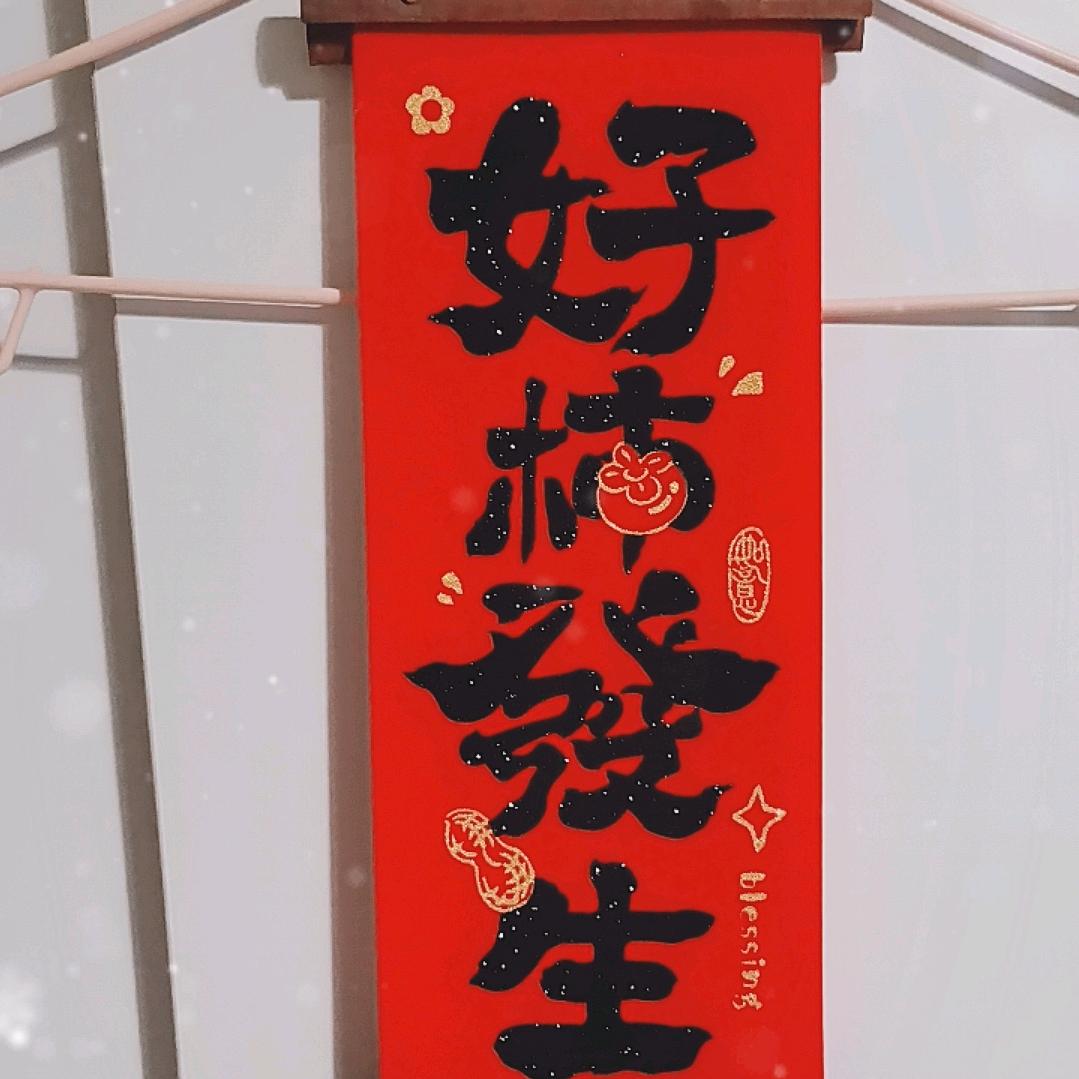 好柿發生
如意
blessing